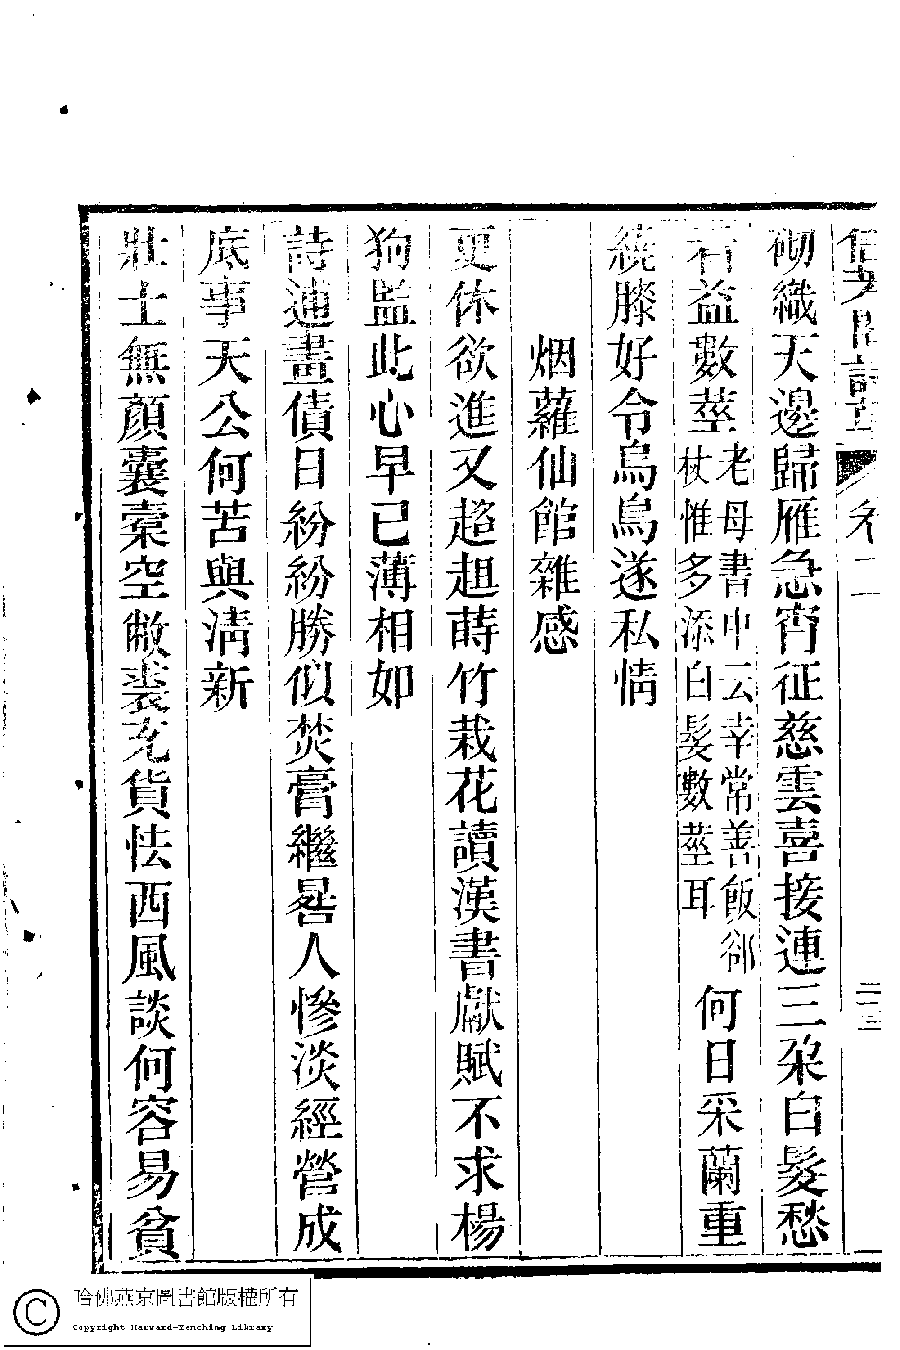 卷二
二三
砌織天邊歸雁急宵征慈雲喜接連三朶白髮愁
看益數莖老母書中云幸常善飯邻
杖惟多添白髮數莖耳何日采蘭重
繞膝好令烏鳥遂私情
烟蘿仙館雜感
更休欲進又趦趄蒔竹栽花讀漢書獻賦不求楊
狗監此心早已薄相如
詩逋畫債日紛紛勝似焚膏繼晷人慘淡經營成
底事天公何苦與淸新
壯士無顏囊橐空敝裘充貨怯西風談何容易貧
哈佛燕京圖書館版權所有
Copyright Harvard-Yenching Library